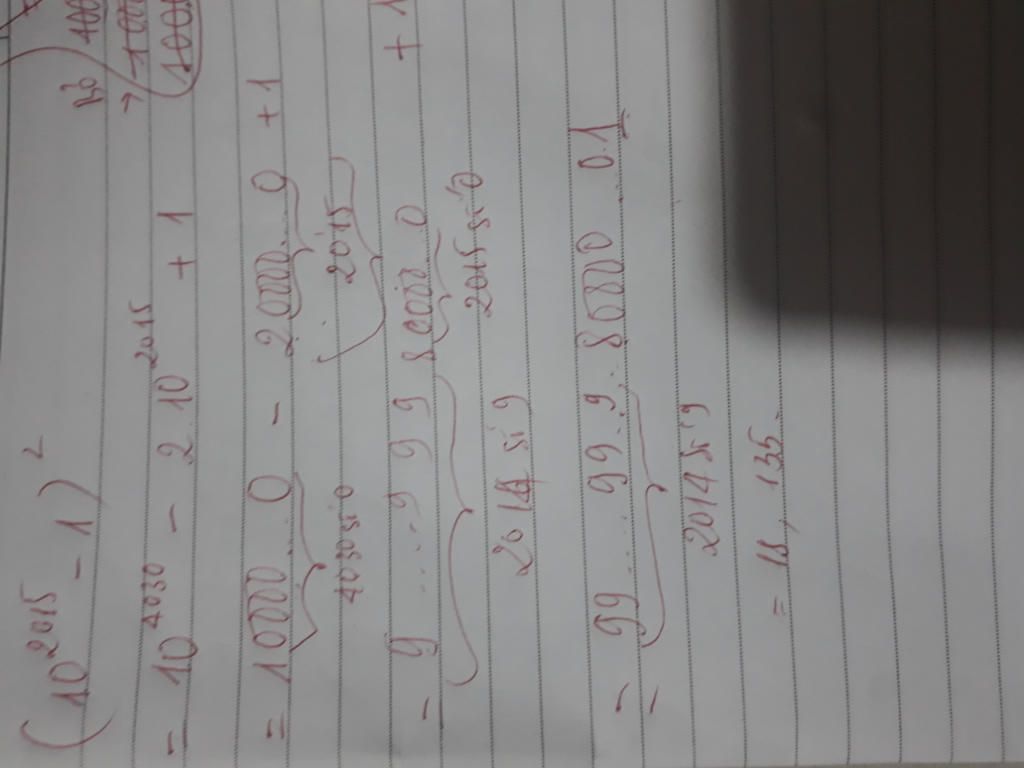 (10^2015 - 1)^2
= 10^4030 - 2.10^2015 + 1
= 10000...0 - 20000...0 + 1
4030 số 0
2015
= 9....9 99 80000..0 + 1
2014 số 9
2015 số 0
= 99.... 99..9... 80000...01
2014 số 9
= 18, 135